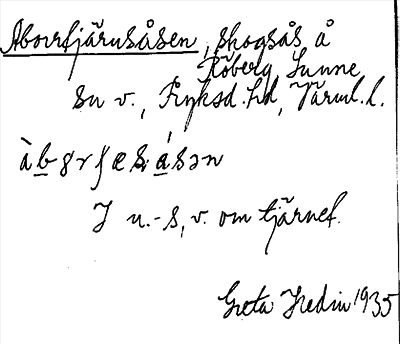 Aborrtjärnsåsen, skogsås å
Röberg, Sunne
sn v., Fryksd. hd, Värml. l.
I n.-s., v. om tjärnet.
Greta Hedin 1935